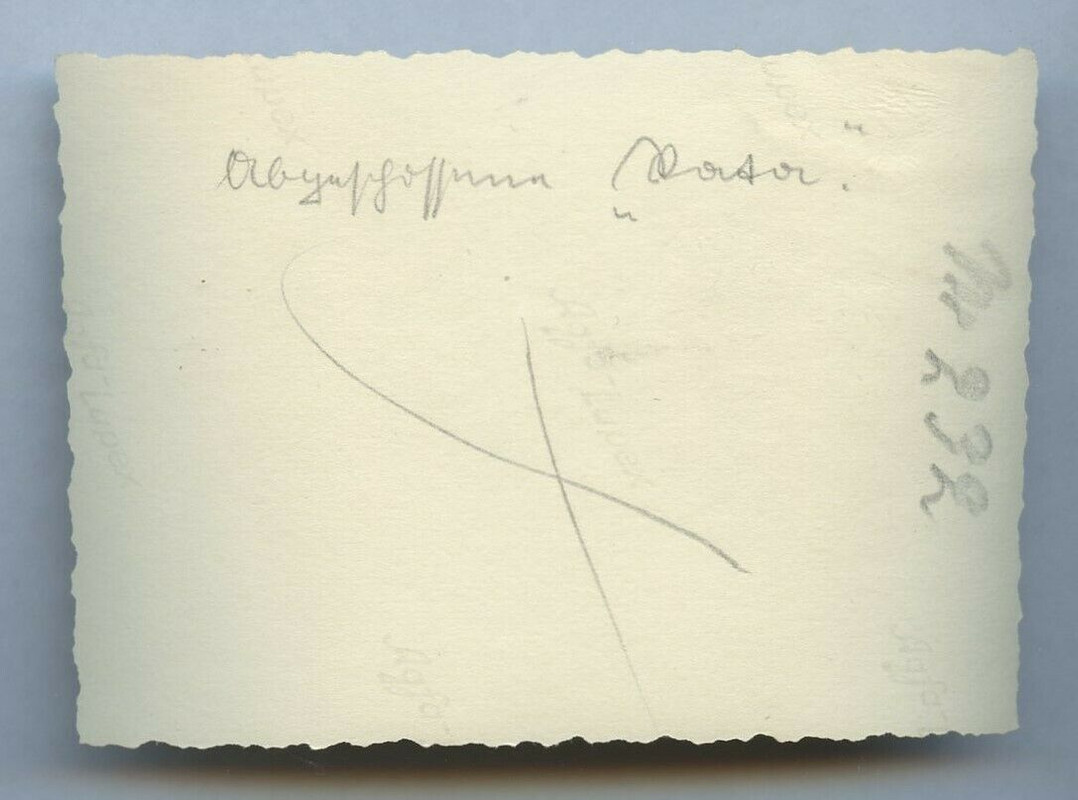 Abgeschossene „Rata“.
Nr 232
Agfa-Lupex
Agfa-Lupex
Agfa
Agfa-